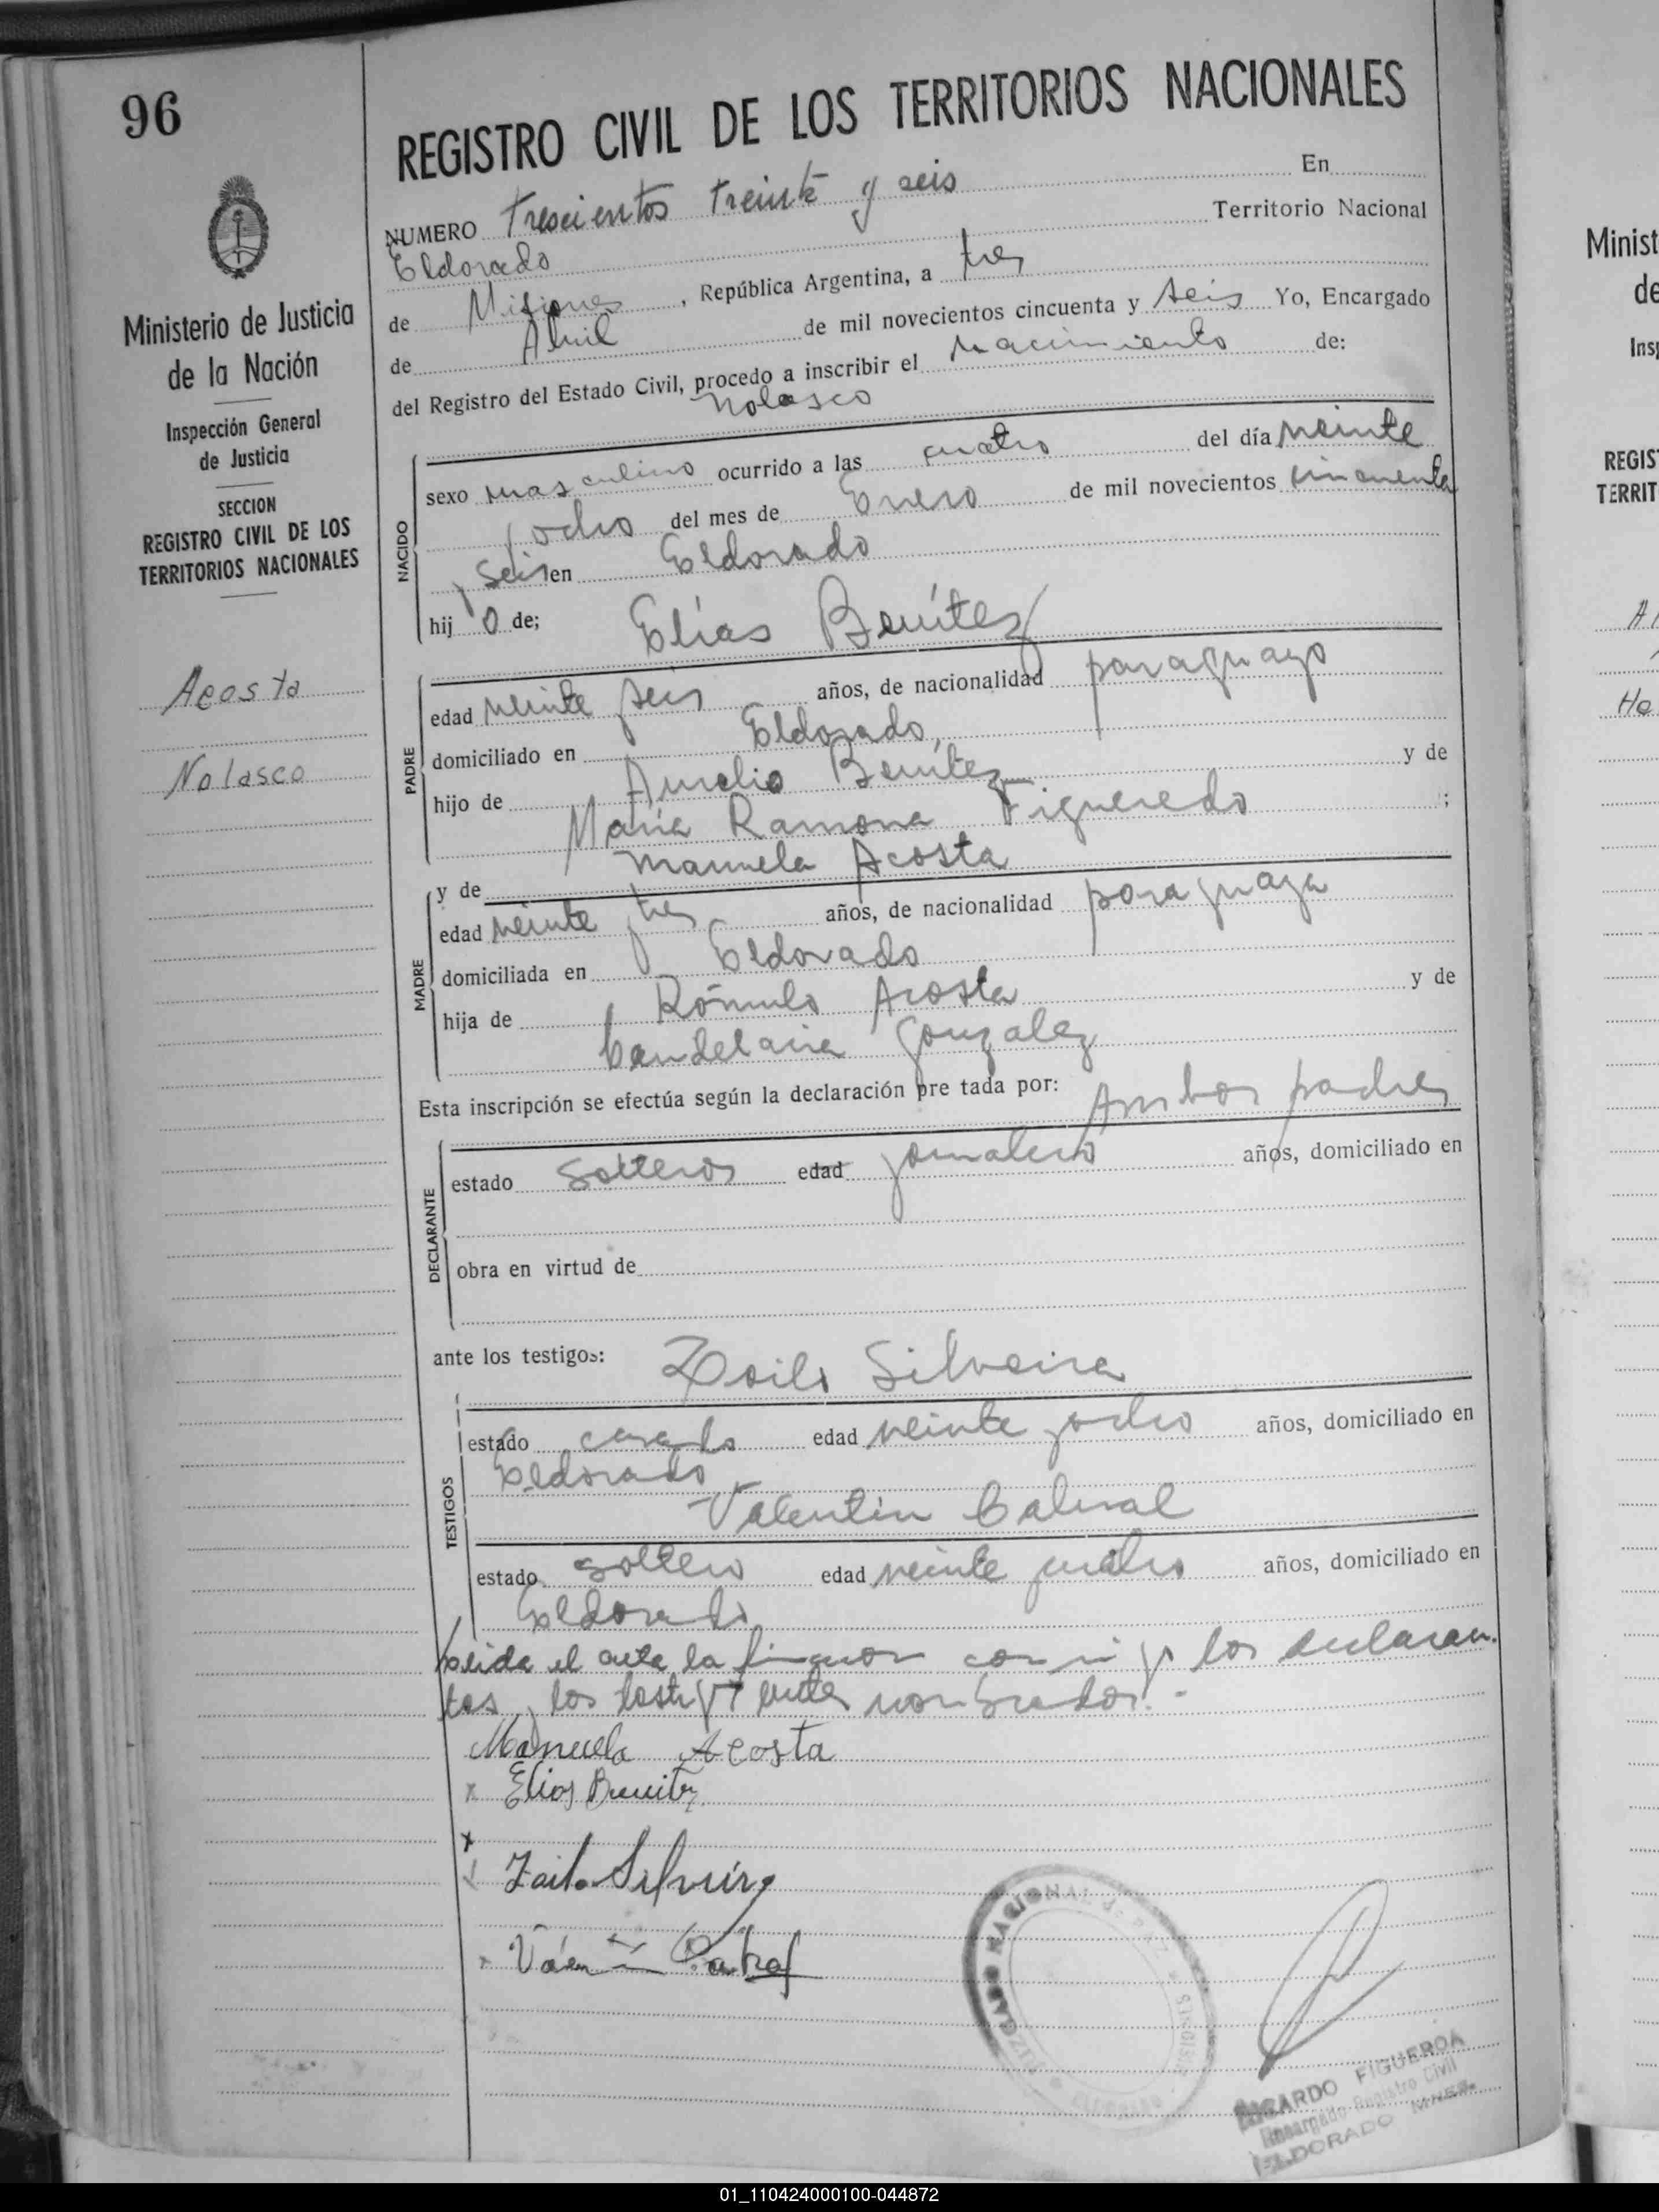 96
Ministerio de Justicia
de la Nación
Inspección General
de Justicia
SECCION
REGISTRO CIVIL DE LOS
TERRITORIOS NACIONALES
Acosta
Nolasco
REGISTRO CIVIL DE LOS TERRITORIOS NACIONALES
NUMERO Trescientos treinta y seis En
Eldorado Territorio Nacional
de Misiones, República Argentina, a tres
de Abril de mil novecientos cincuenta y seis Yo, Encargado
del Registro del Estado Civil, procedo a inscribir el nacimiento de:
Nolasco
NACIDO
sexo masculino ocurrido a las cuatro del día veinte
y ocho del mes de Enero de mil novecientos cincuenta
y seis en Eldorado
hij o de; Elías Benítez
PADRE
edad veinte y seis años, de nacionalidad paraguayo
domiciliado en Eldorado,
hijo de Aurelio Benítez y de
María Ramona Figueredo ;
y de Manuela Acosta
MADRE
edad veinte y tres años, de nacionalidad paraguaya
domiciliada en Eldorado
hija de Rómulo Acosta y de
Candelaria Gonzalez
Esta inscripción se efectúa según la declaración pre tada por: Ambos padres
DECLARANTE
estado solteros edad jornalero años, domiciliado en
obra en virtud de
ante los testigos: Zoilo Silveira
TESTIGOS
estado casado edad veinte y ocho años, domiciliado en
Eldorado
Valentín Cabral
estado soltero edad veinte y cuatro años, domiciliado en
Eldorado
Leida el acta la firman conmigo los declaran-
tes y los testigos antes nombrados.-
Manuela Acosta
x Elias Benitez
x
Zoilo Silveira
x Cabral
JUZGADO NACIONAL de PAZ
MISIONES
ELDORADO
RICARDO FIGUEROA
Encargado Registro Civil
ELDORADO MNES.
Minist
de
Insp
REGIS
TERRIT
He
01_110424000100-044872